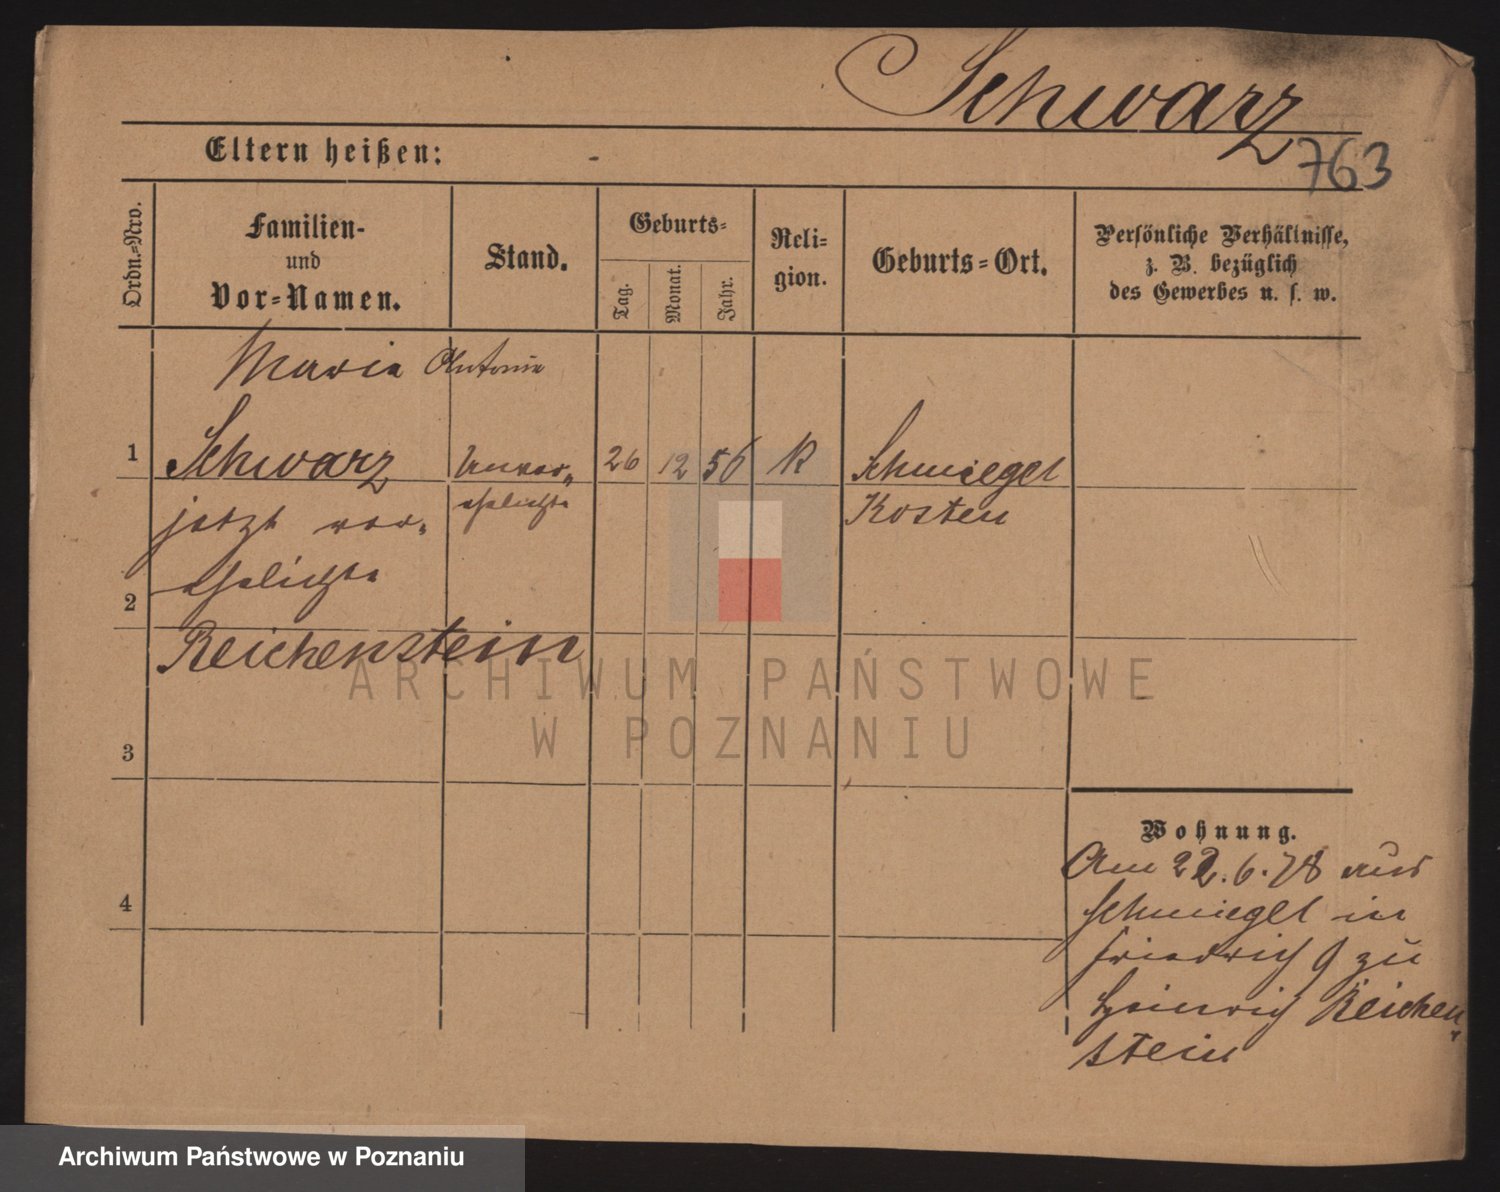 Schwarz
763
Eltern heißen: -
Ordn.-Nro.
Familien-
und
Vor-Namen.
Stand.
Geburts-
Tag.
Monat.
Jahr.
Reli-
gion.
Geburts-Ort.
Persönliche Verhältnisse,
z. B. bezüglich
des Gewerbes u. s. w.
Maria Antonie
1 Schwarz Unver- 26 12 56 K Schmiegel
jetzt ver- ehelichte Kosten
2 ehelichte
Reichenstein
3
4
Wohnung.
Am 22.6.78 aus
Schmiegel in
Friedrich 9 zu
Heinrich Reichen-
stein
ARCHIWUM PAŃSTWOWE
W POZNANIU
Archiwum Państwowe w Poznaniu